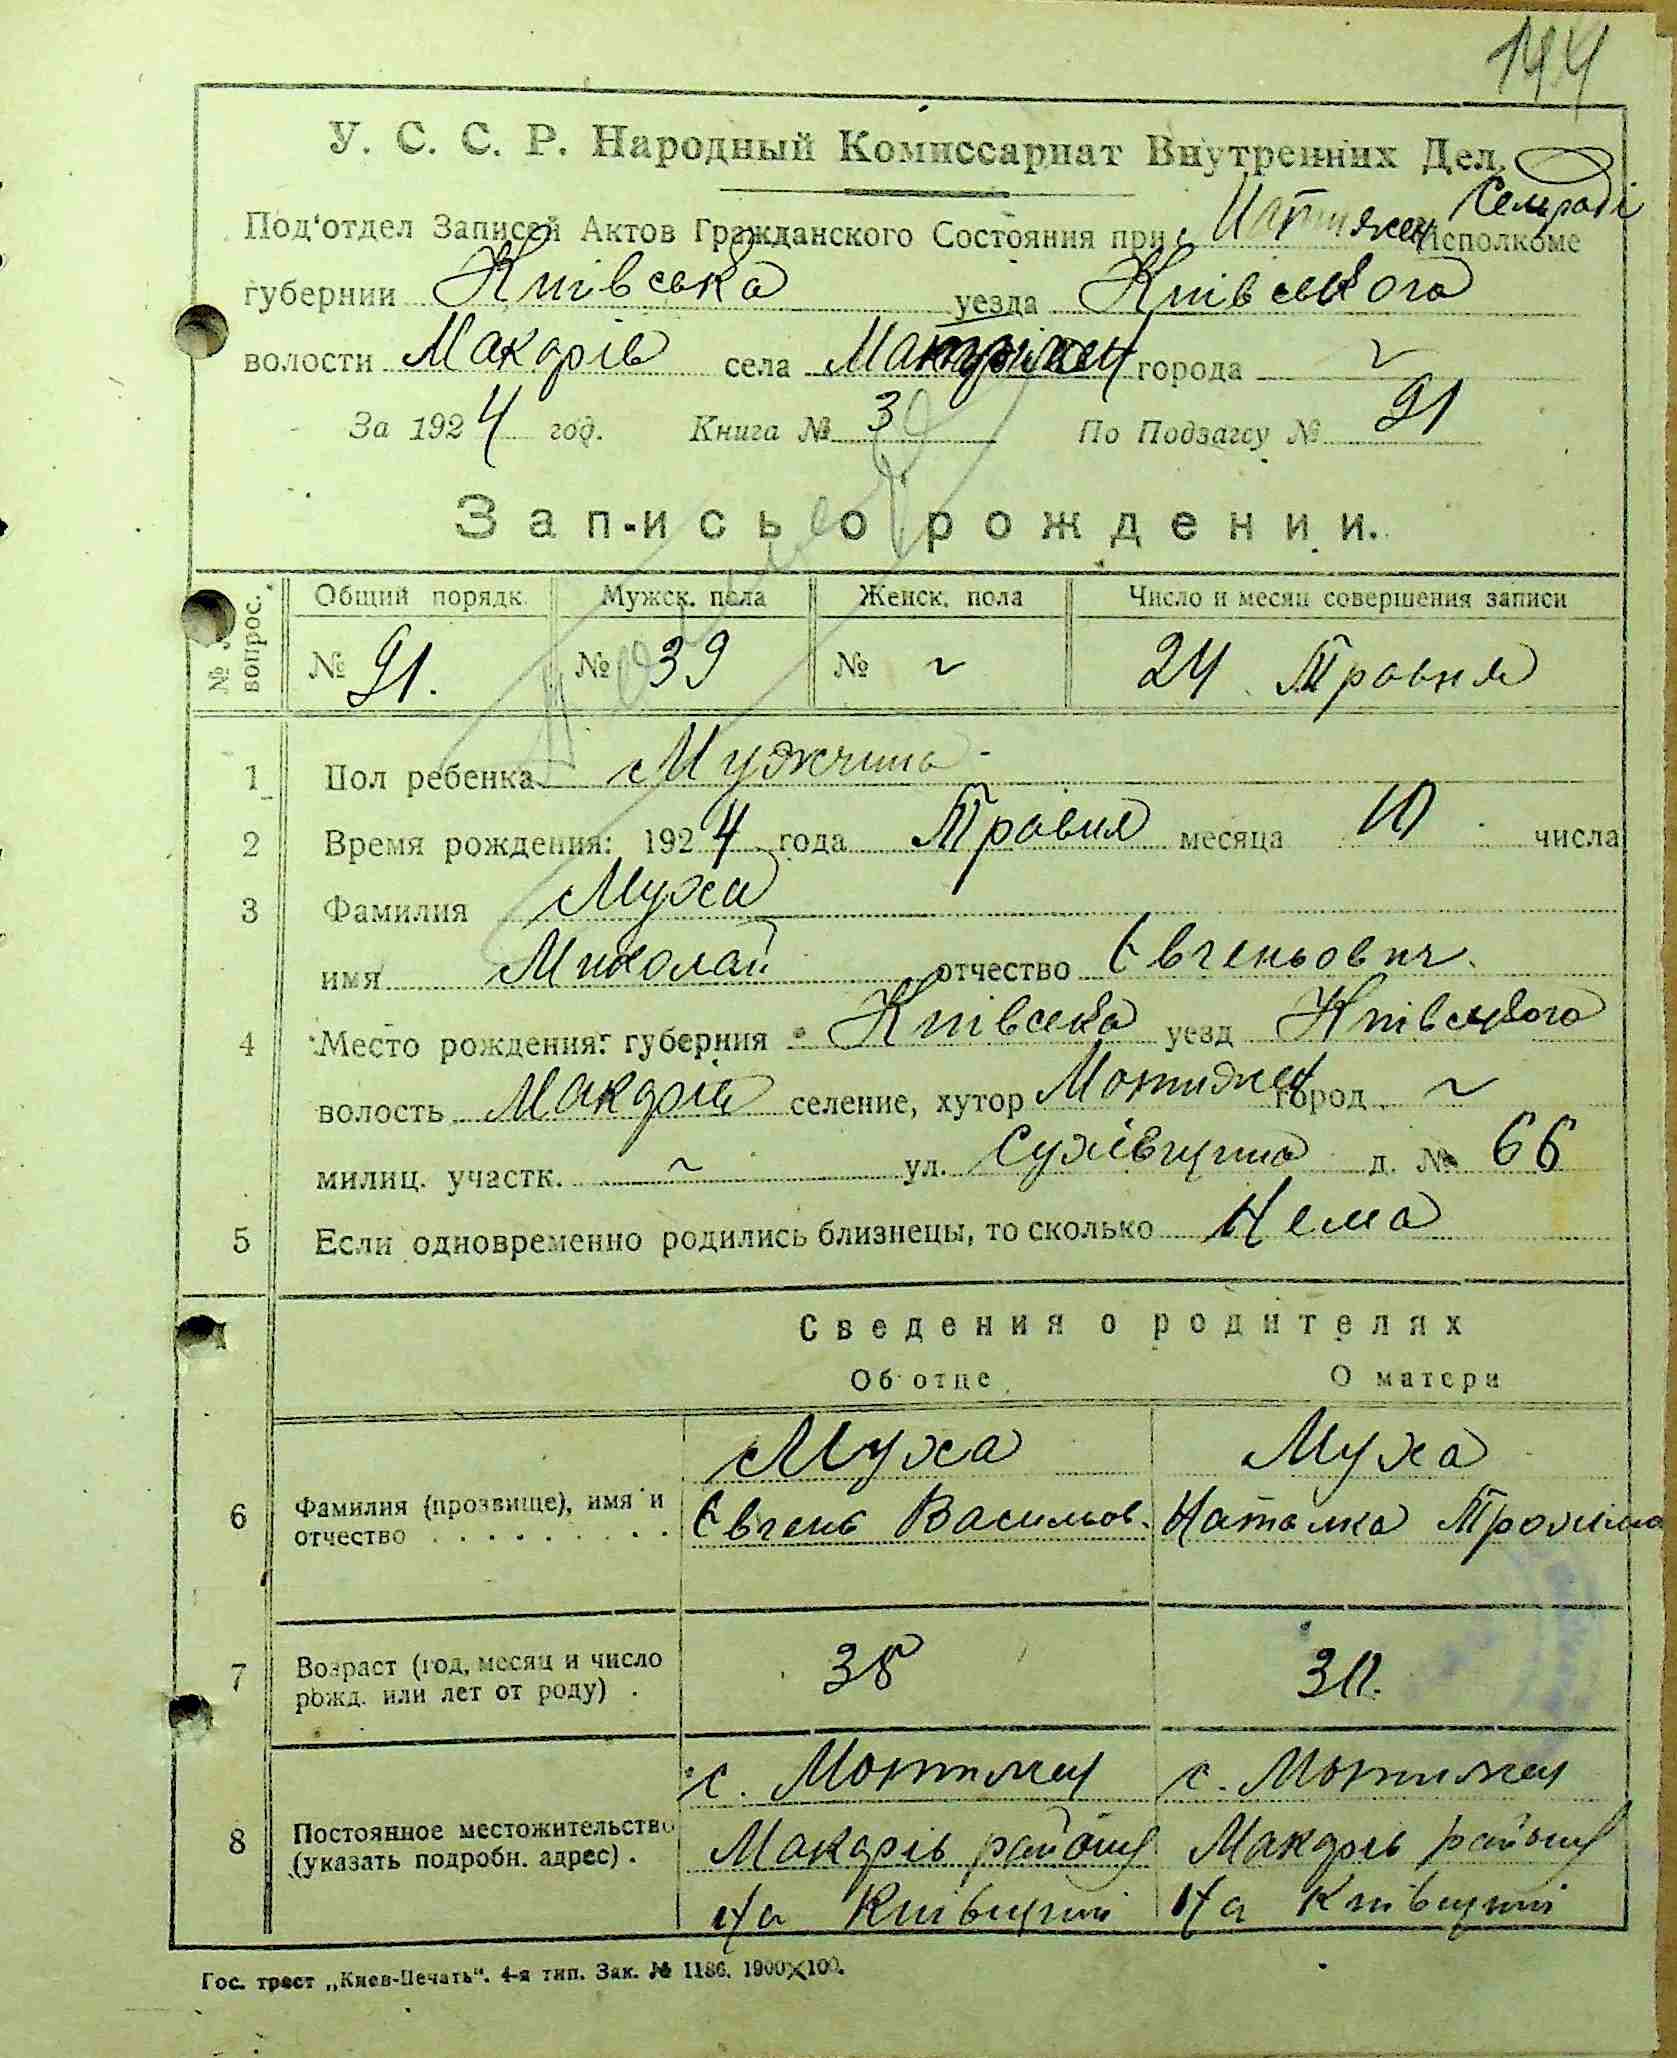 144
У. С. С. Р. Народный Комиссариат Внутренних Дел.
Сельраді
Под'отдел Записей Актов Гражданского Состояния при Исполкоме
губернии Київська уезда Київського
волости Макарів села города ~
За 1924 год. Книга № 3 По Подзагсу № 91
Запись о рождении.
№ вопрос. Общий порядк. Мужск. пола Женск. пола Число и месяц совершения записи
№ 91. № 39 № ~ 24 Травня
1 Пол ребенка Мужчина
2 Время рождения: 1924 года Травня месяца числа
3 Фамилия Муха
имя Миколай отчество Євгеньович.
4 Место рождения: губерния Київська уезд Київського
волость Макарів селение, хутор Мотижен город ~
милиц. участк. ~ ул. Сухівщина д. № 66
5 Если одновременно родились близнецы, то сколько Нема
Сведения о родителях
Об отце О матери
Муха Муха
6 Фамилия (прозвище), имя и отчество Євгень Васильов. Наталка Трохима
7 Возраст (год, месяц и число рожд. или лет от роду) . 38 30.
с. Мотижен с. Мотижен
8 Постоянное местожительство (указать подробн. адрес) . Макарів району Макарів району
На Київщині На Київщині
Гос. трест „Киев-Печать". 4-я тип. Зак. № 1186. 1900×100.